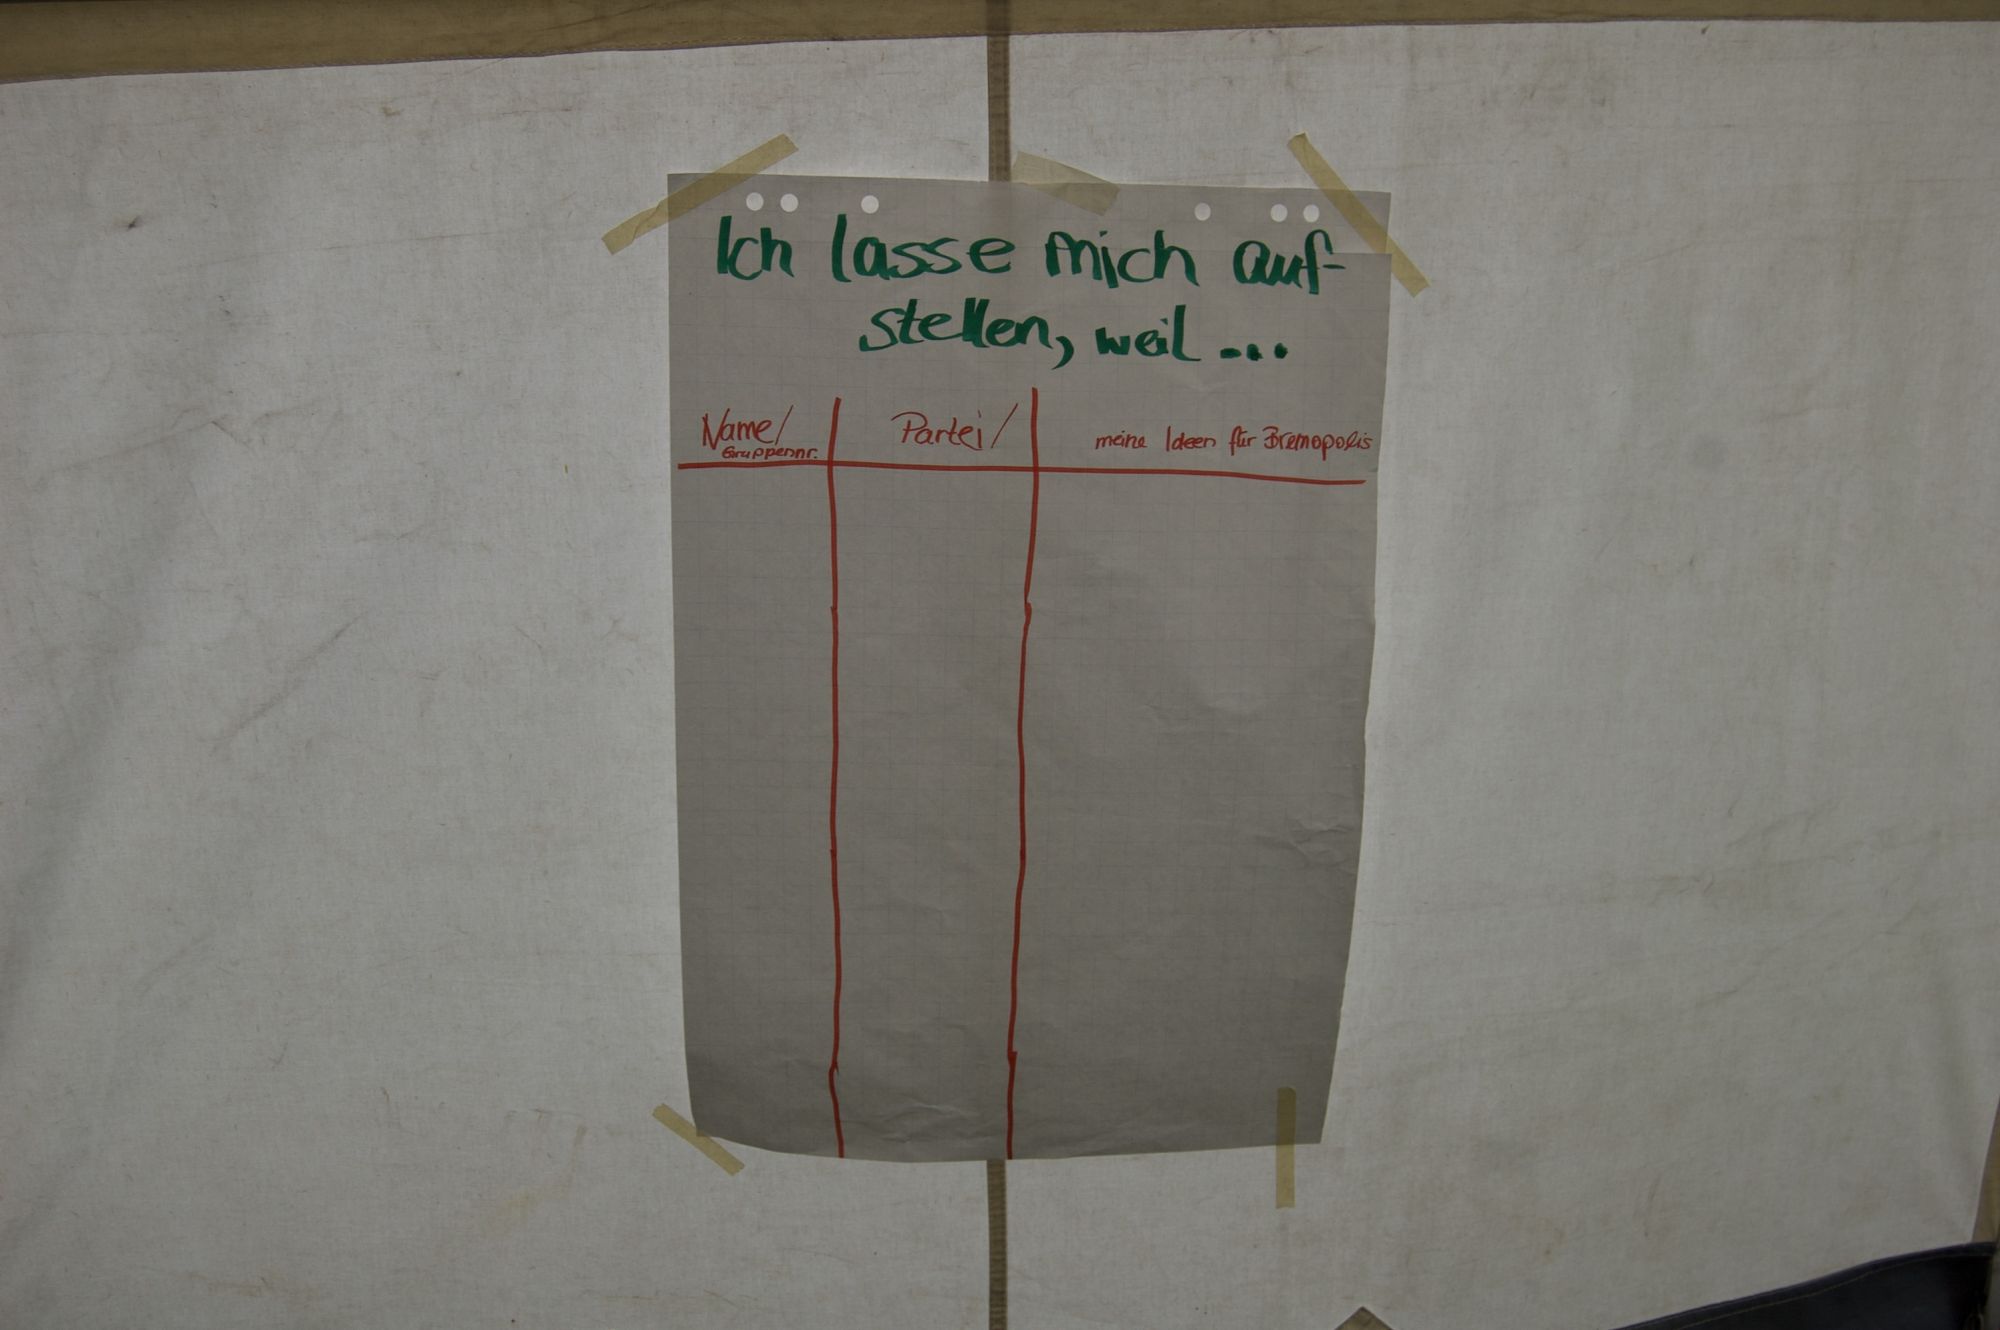 Ich lasse mich auf-
stellen, weil ...
Name/ Partei/ meine Ideen für Bremopolis
Gruppennr.